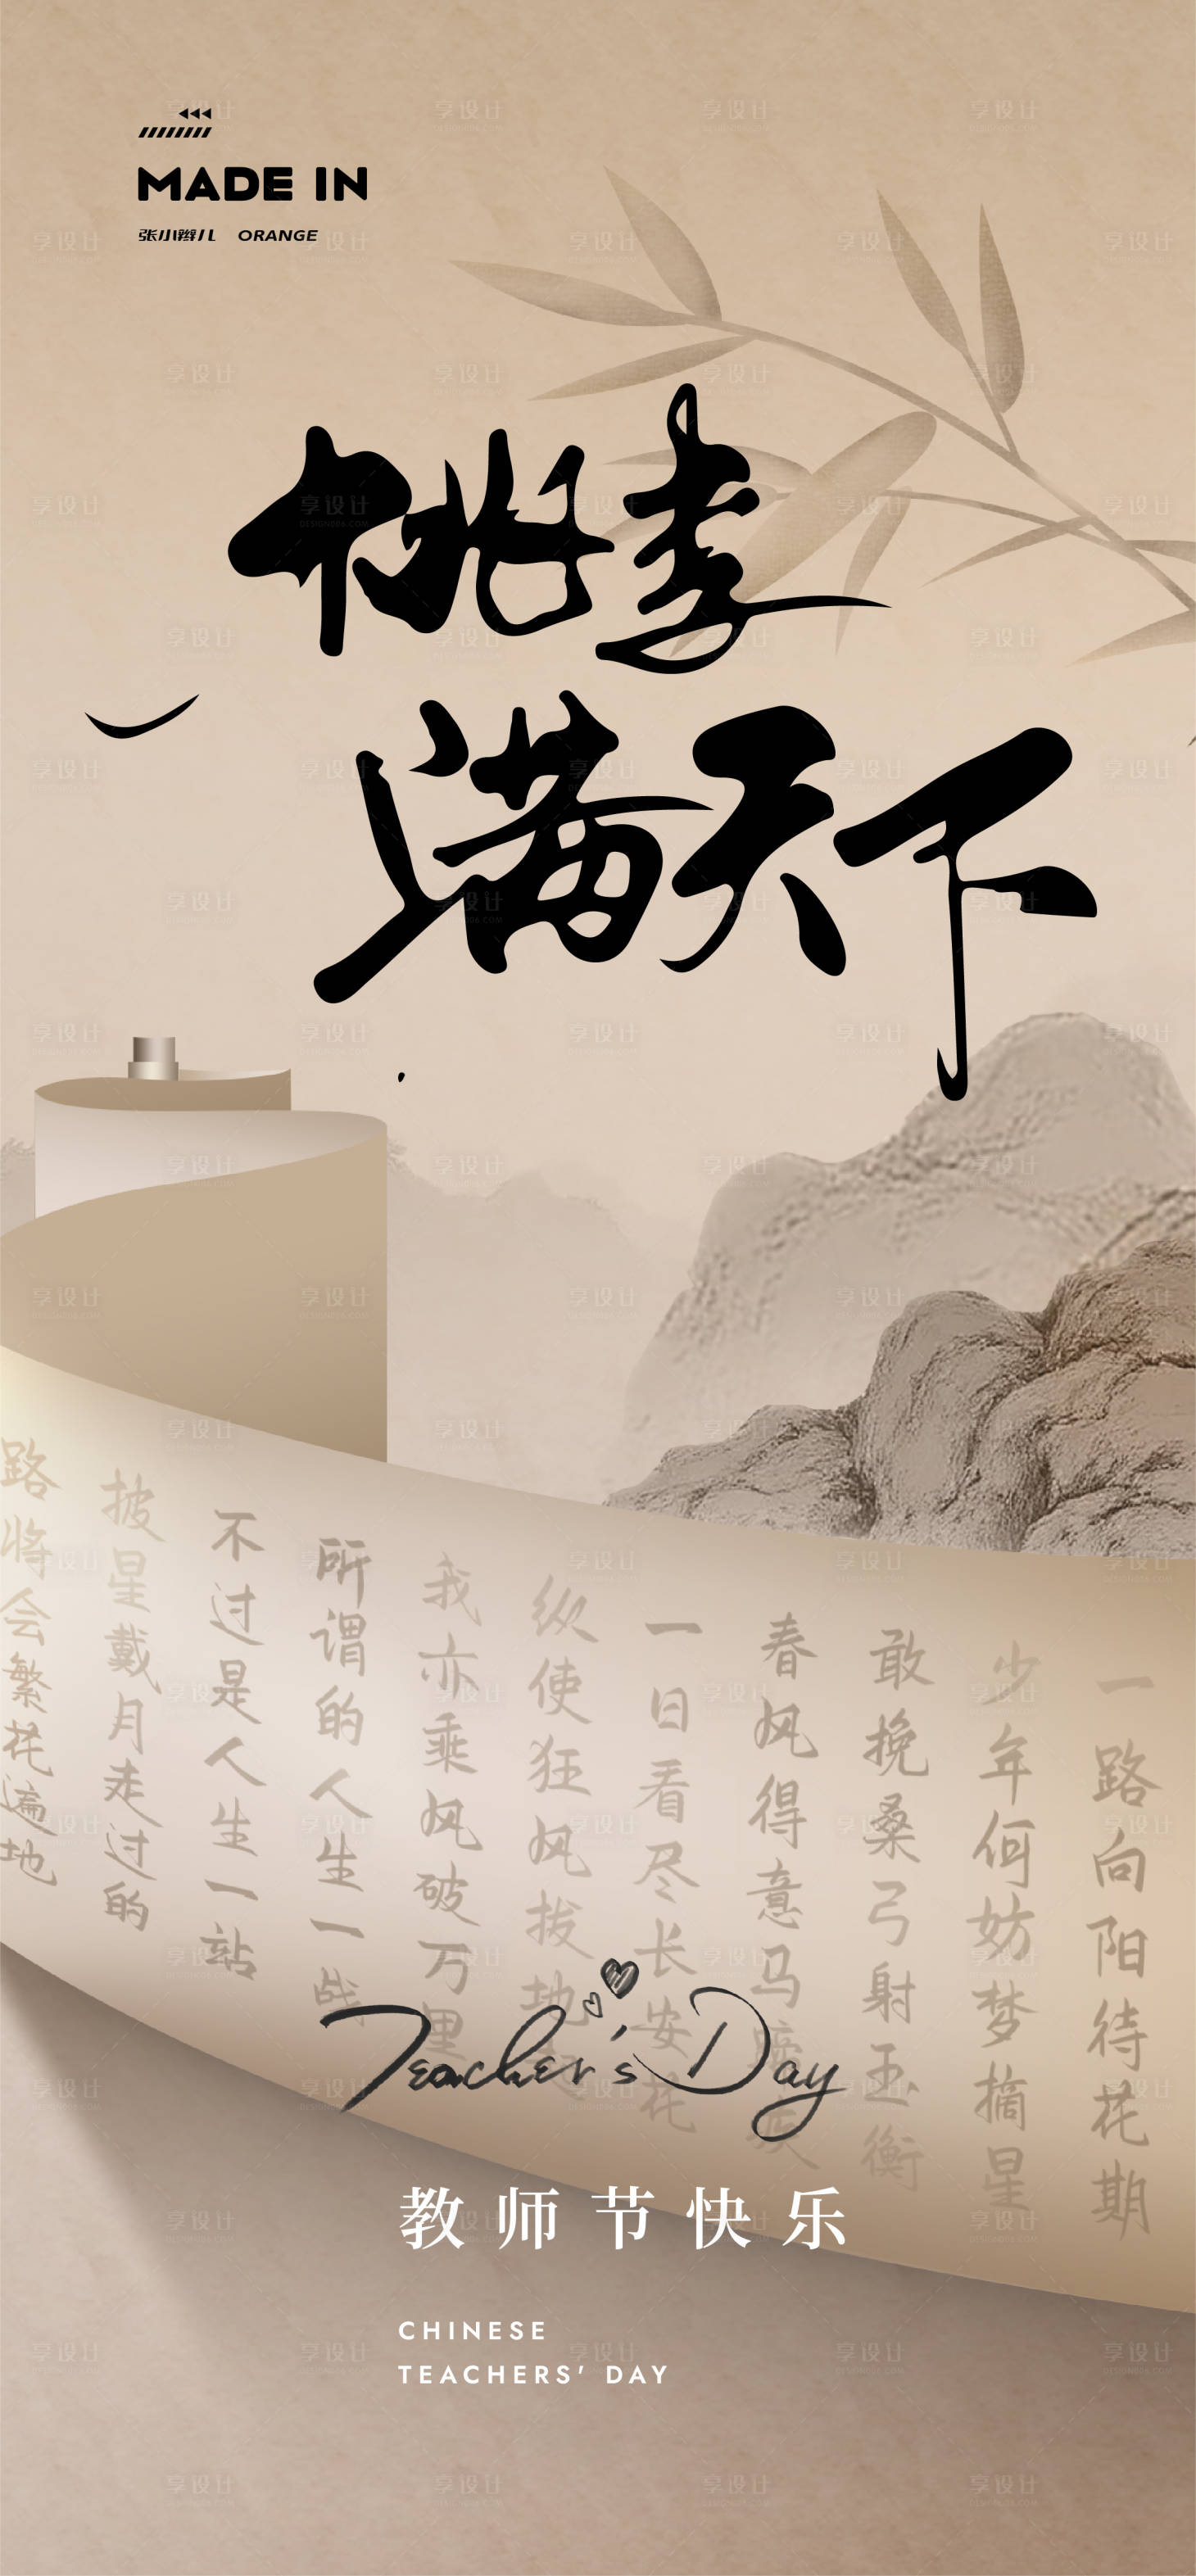 MADE IN
张小辫儿 ORANGE
桃李
满天下
一路向阳待花期
少年何妨梦摘星
敢挽桑弓射玉衡
春风得意马蹄疾
一日看尽长安花
纵使狂风拔地
我亦乘风破万里
所谓的人生一战
不过是人生一站
披星戴月走过的
路将会繁花遍地
Teacher's Day
教师节快乐
CHINESE
TEACHERS' DAY
享设计
DESIGN006.COM